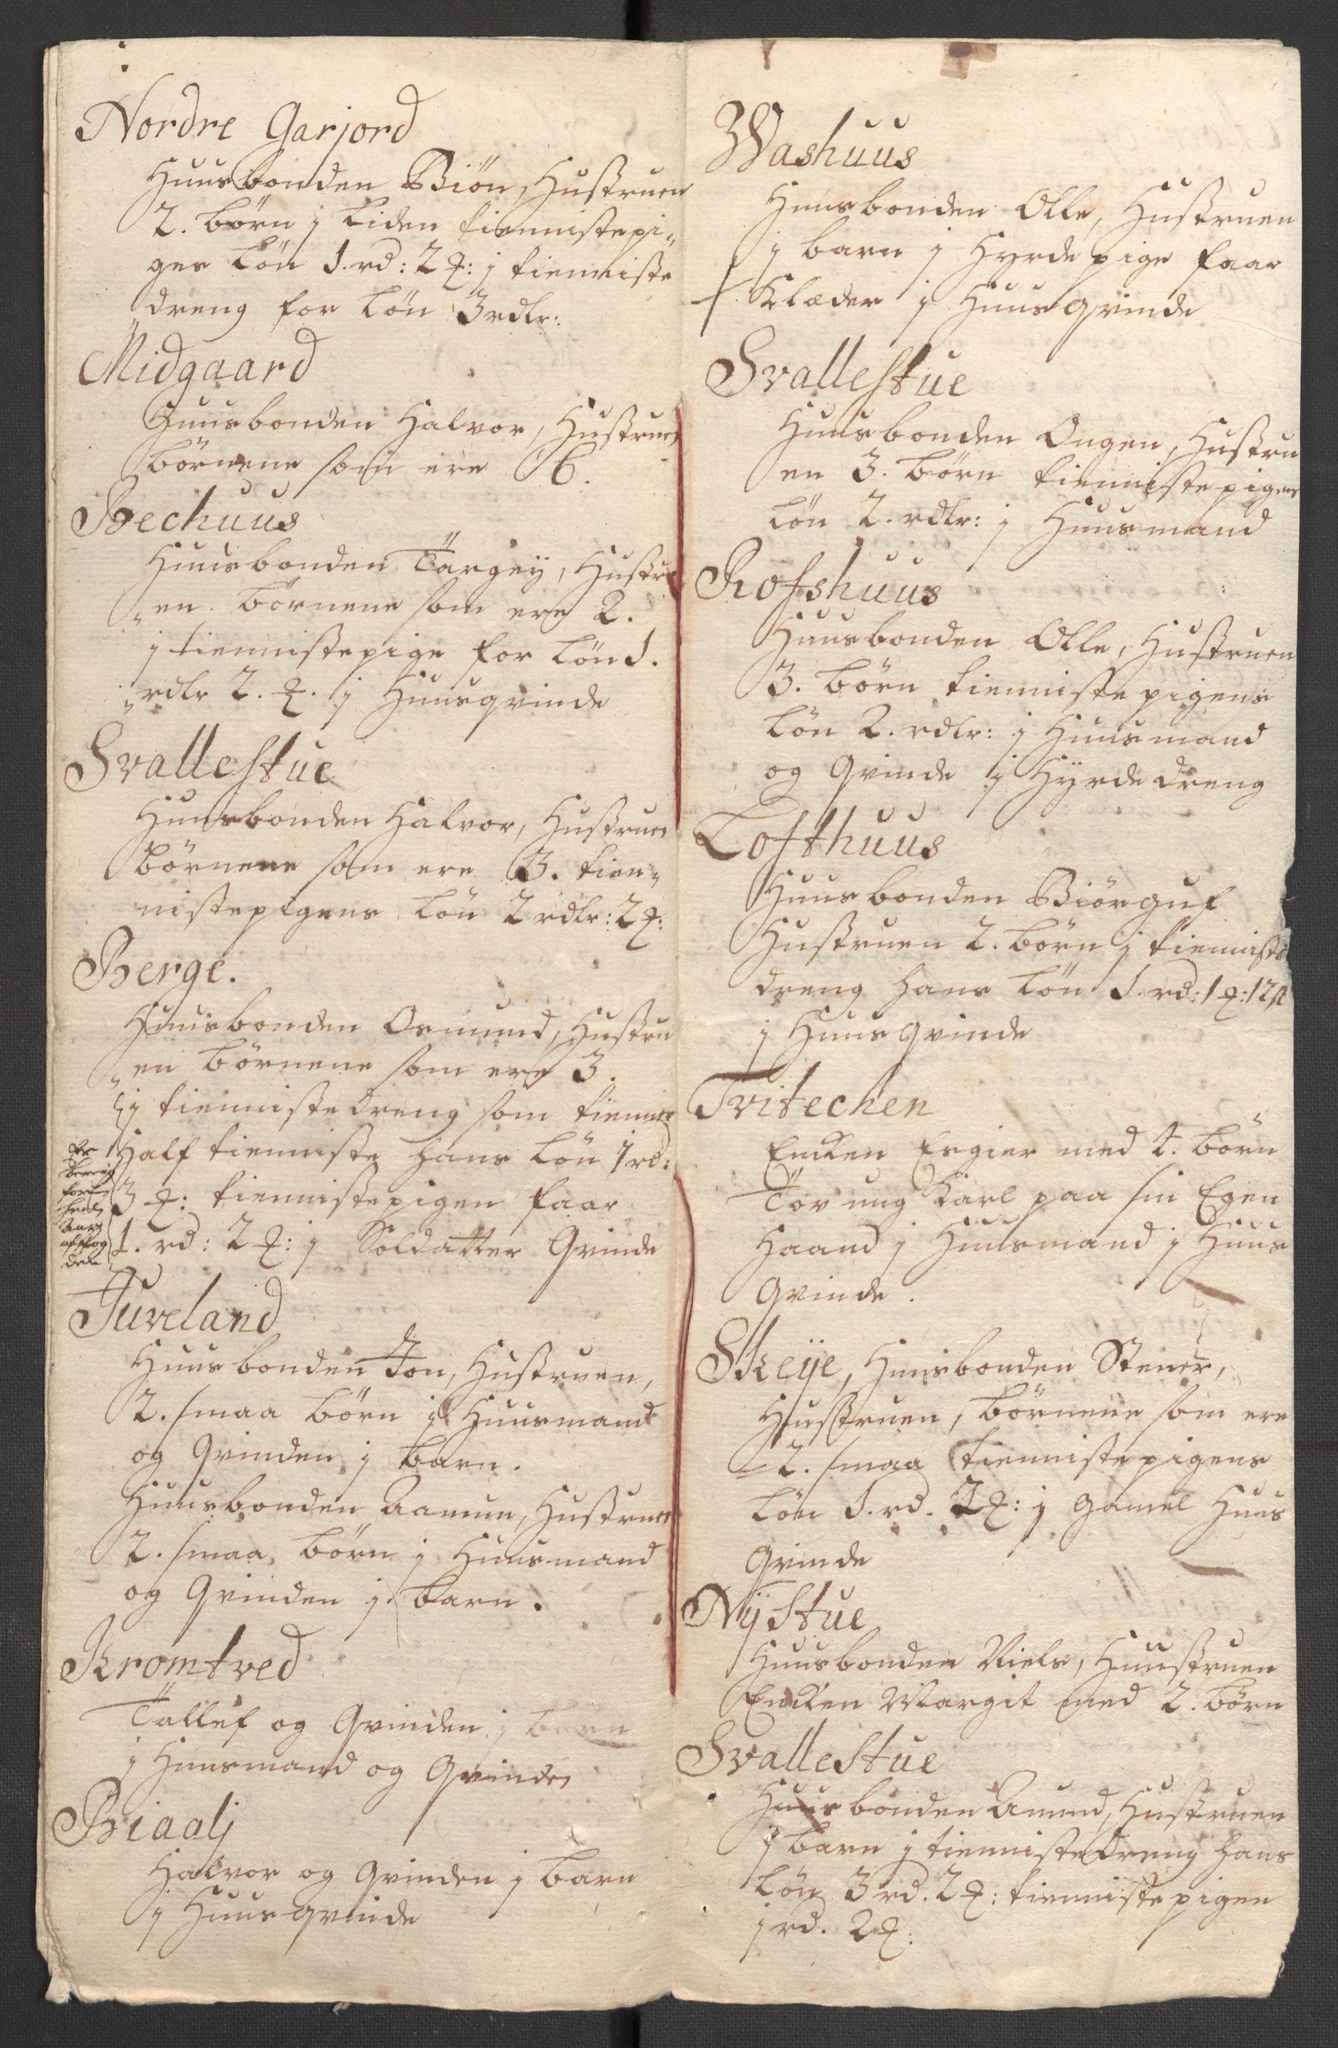 Nordre Garjord
Huusbonden Biøn, Hustruen
2. børn j liden tienniste pi-
ges Løn 1. rd: 2 ꝗ: j tienniste
dreng for Løn 3 rdlr:
Midgaard
Huusbonden Halvor, Hustruen
børnene som ere 6.
Bechuus
Huusbonden Targey, Hustru
en. børnene som ere 2.
j tiennistepige for Løn 1.
rdlr 2. ꝗ. j Huusqvinde
Svallestue
Huusbonden Halvor, Hustruen
børnene som ere 3. tien-
nistepigens Løn 2 rdlr: 2 ꝗ:
Berge.
Huusbonden Osmund, Hustru
en børnene som ere 3.
j tiennistedreng som tienner
Half tienniste hans Løn 1 rd:
3 ꝗ: tiennistepigen faar
1. rd: 2 ꝗ: j Soldatter Qvinde
Juveland
Huusbonden Jon, Hustruen,
2. smaa børn j Huusmand
og Qvinden j barn.
Huusbonden Aamun, Hustruen
2. smaa børn j Huusmand
og Qvinden j barn.
Kromtved
Tallef og Qvinden j barn
j Huusmand og Qvinde
Biaalj
Halvor og Qvinden j barn
j Huusqvinde
Washuus
Huusbonden Olle, Hustruen
j barn j Hyrde pige faar
Klæder j Huusqvinde
Svallestue
Huusbonden Ougen, Hustru
en 3. børn tiennistepigens
Løn 2. rdlr: j Huusmand
Rofshuus
Huusbonden Olle, Hustruen
3. børn tienniste pigens
Løn 2. rdlr: j Huusmand
og Qvinde j Hyrdedreng
Lofthuus
Huusbonden Biørguf
Hustruen 2. børn j tienniste
dreng hans Løn 1. rd: 1 ꝗ: 12 ß
j Huusqvinde
Tvitechen
Encken Esgier med 4. børn
Tov ung Karl paa sin Egen
Haand j Huusmand j Huus
Qvinde.
Skeÿe, Huusbonden Stener,
Hustruen, børnene som ere
2. smaa tiennistepigens
Løn 1. rd. 2 ꝗ: j Gamel Huus
Qvinde
Nÿstue
Huusbonden Niels, Huustruen
Encken Margit med 2. børn
Svallestue
Huusbonden Amund, Hustruen
j barn j tiennistedreng hans
Løn 3 rd. 2 ꝗ: tiennistepigen
j rd. 2 ꝗ: